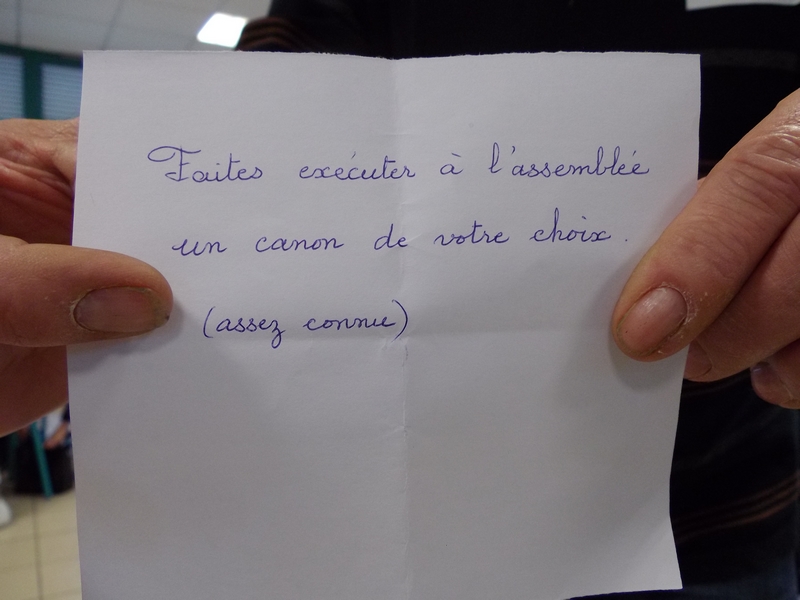 Faites exécuter à l'assemblée
un canon de votre choix.
(assez connu)